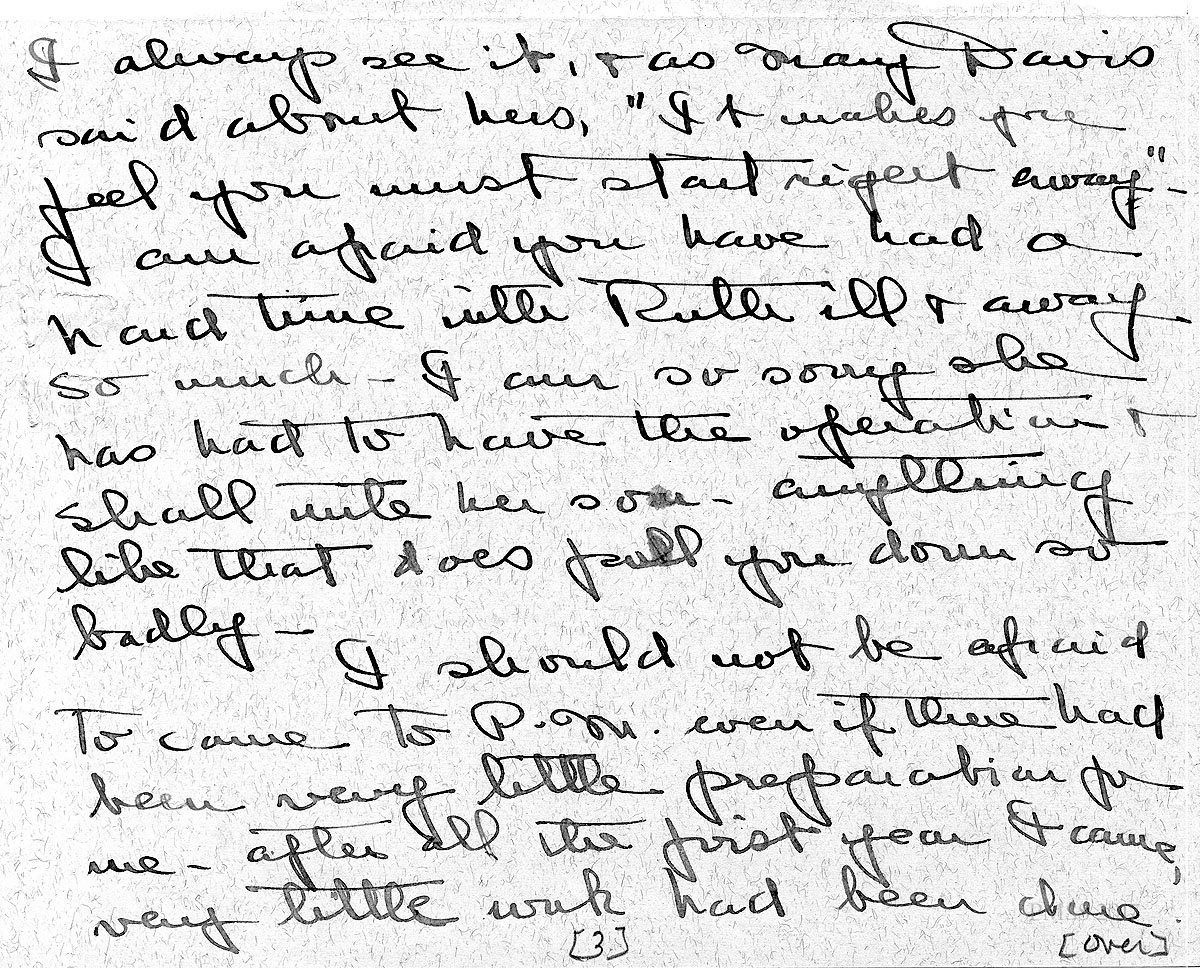 I always see it, & as Mary Davis
said about hers, "It makes you
feel you must start right away" -
I am afraid you have had a
hard time with Ruth ill & away
so much - I am so sorry she
has had to have the operation &
shall write her soon - anything
like that does pull you down so
badly -
I should not be afraid
to come to P. M. even if there had
been very little preparation for
me - after all the first year I came,
very little work had been done.
[3.] [over]